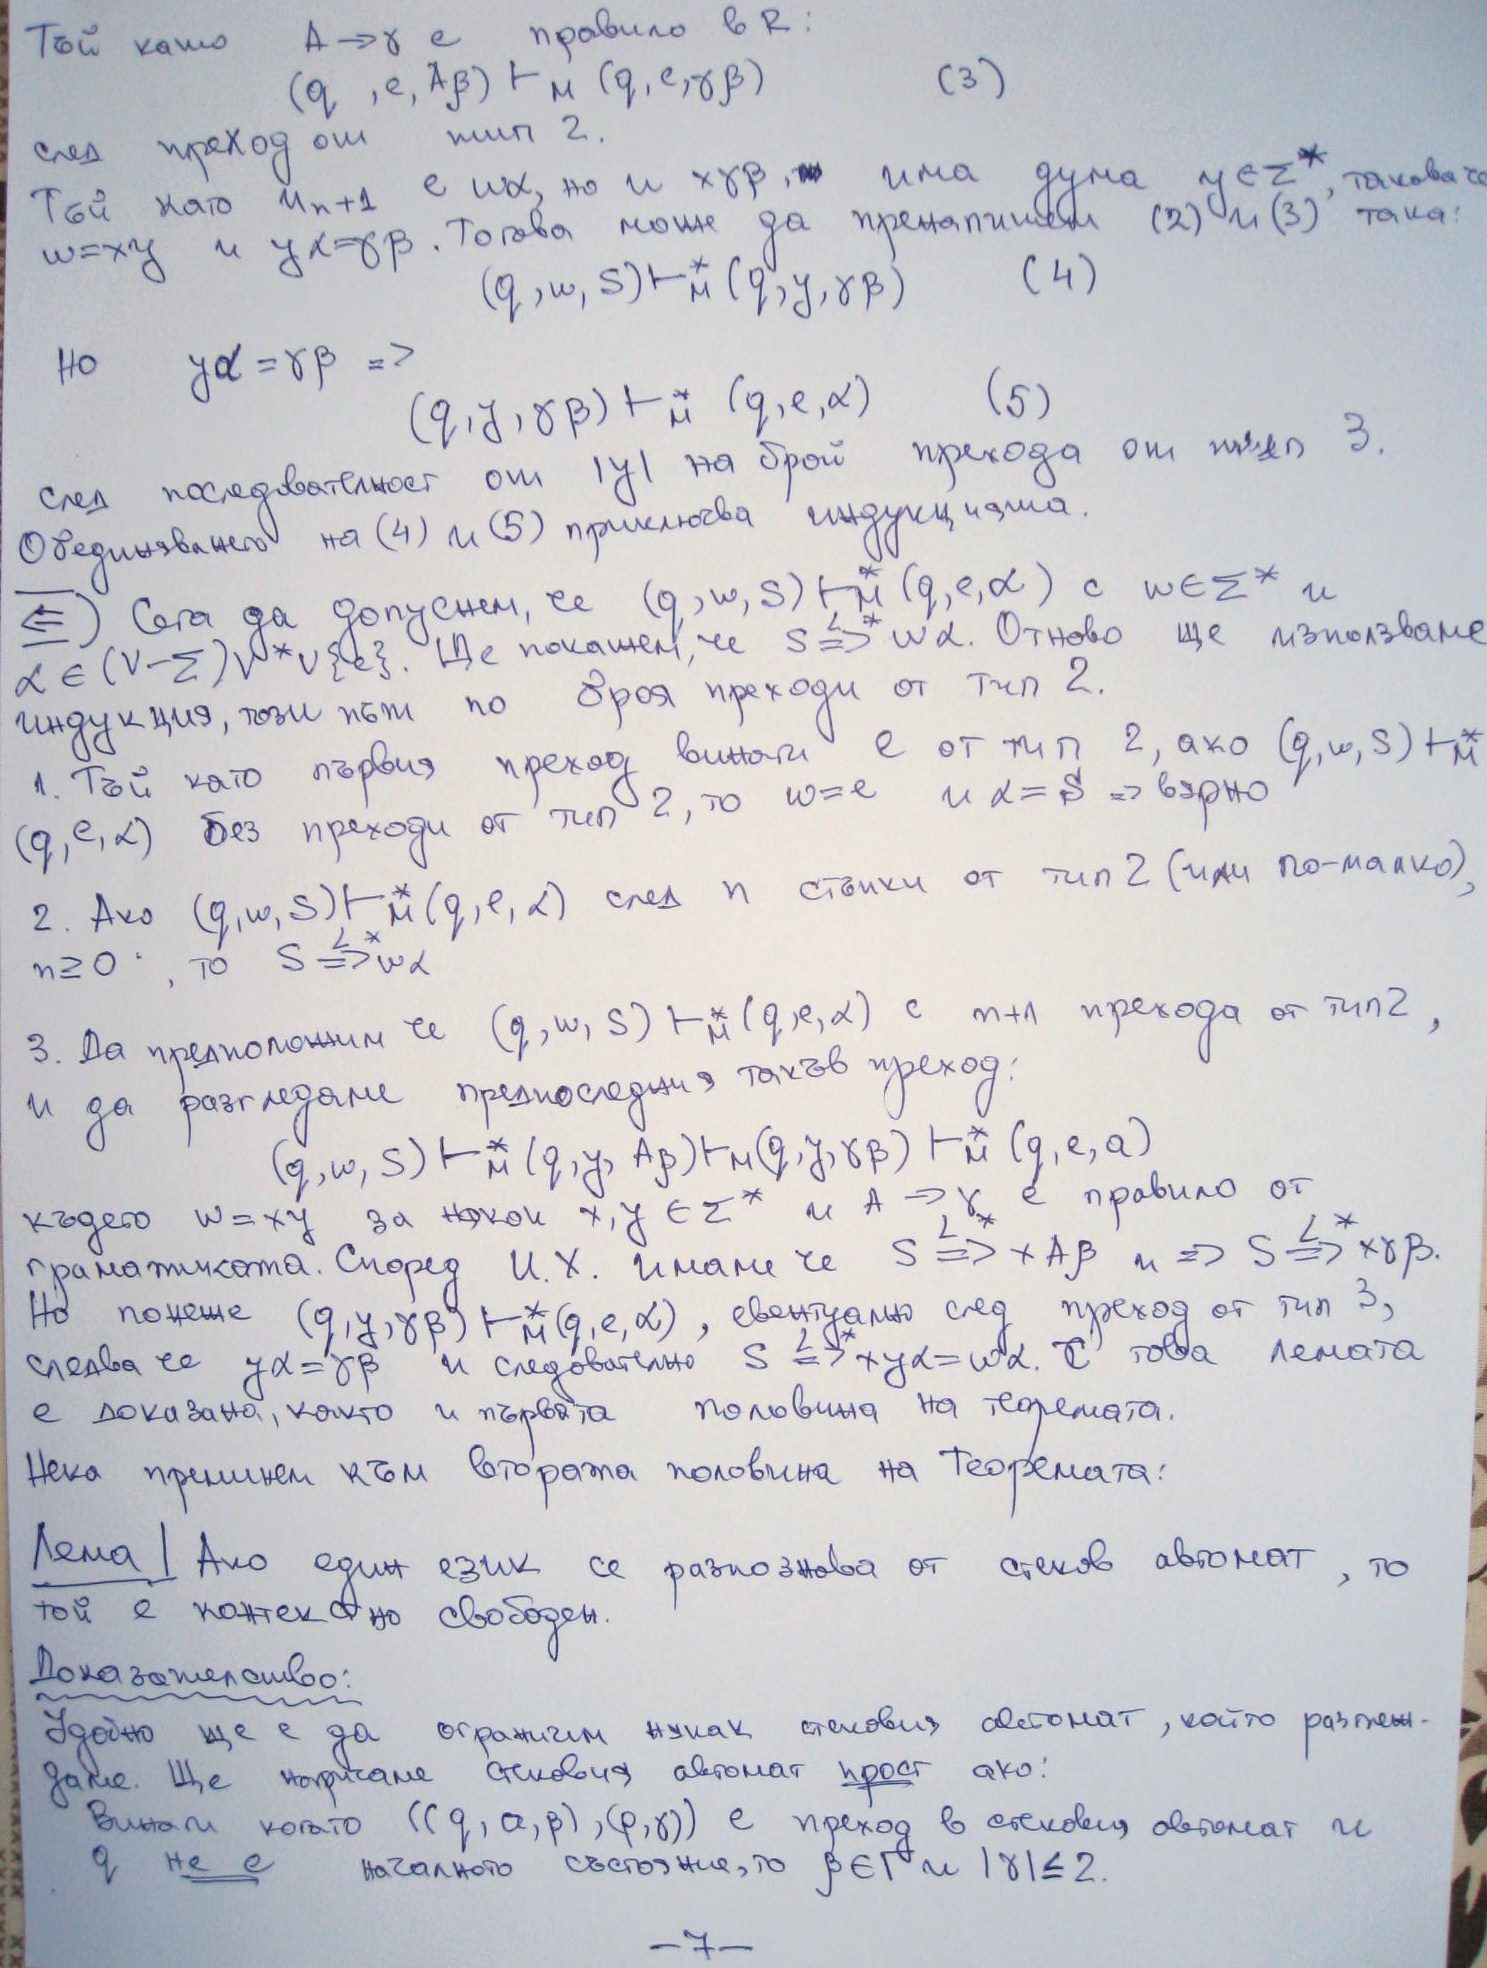 Тъй като A→γ е правило в R:
(q, e, Aβ) ⊢M (q, e, γβ) (3)
след преход от тип 2.
Тъй като un+1 е wα, но и xγβ, има дума y∈Σ*, такова че
w=xy и yα=γβ. Тогава може да пренапишем (2) и (3) така:
(q, w, S) ⊢*M (q, y, γβ) (4)
Но yα = γβ =>
(q, y, γβ) ⊢*M (q, e, α) (5)
след последователност от |y| на брой прехода от тип 3.
Обединяването на (4) и (5) приключва индукцията.
⇐) Сега да допуснем, че (q, w, S) ⊢*M (q, e, α) с w∈Σ* и
α ∈ (V−Σ)V*∪{e}. Ще покажем, че S L=>* wα. Отново ще използваме
индукция, този път по броя преходи от тип 2.
1. Тъй като първия преход винаги е от тип 2, ако (q, w, S) ⊢*M
(q, e, α) без преходи от тип 2, то w=e и α=S => вярно
2. Ако (q, w, S) ⊢*M (q, e, α) след n стъпки от тип 2 (или по-малко),
n≥0, то S L=>* wα
3. Да предположим че (q, w, S) ⊢*M (q, e, α) с n+1 прехода от тип 2,
и да разгледаме предпоследния такъв преход:
(q, w, S) ⊢*M (q, y, Aβ) ⊢M (q, y, γβ) ⊢*M (q, e, a)
където w=xy за някои x, y ∈ Σ* и A → γ е правило от
граматиката. Според И.Х. имаме че S L=>* xAβ и => S L=>* xγβ.
Но понеже (q, y, γβ) ⊢*M (q, e, α), евентуално след преход от тип 3,
следва че yα=γβ и следователно S L=>* xyα=wα. С това лемата
е доказана, както и първата половина на теоремата.
Нека преминем към втората половина на Теоремата:
Лема | Ако един език се разпознава от стеков автомат, то
той е контекстно свободен.
Доказателство:
Удобно ще е да ограничим някак стековия автомат, който разглеж-
даме. Ще наричаме стековия автомат прост ако:
Винаги когато ((q, a, β), (p, γ)) е преход в стековия автомат и
q не е началното състояние, то β∈Γ и |γ|≤2.
—7—